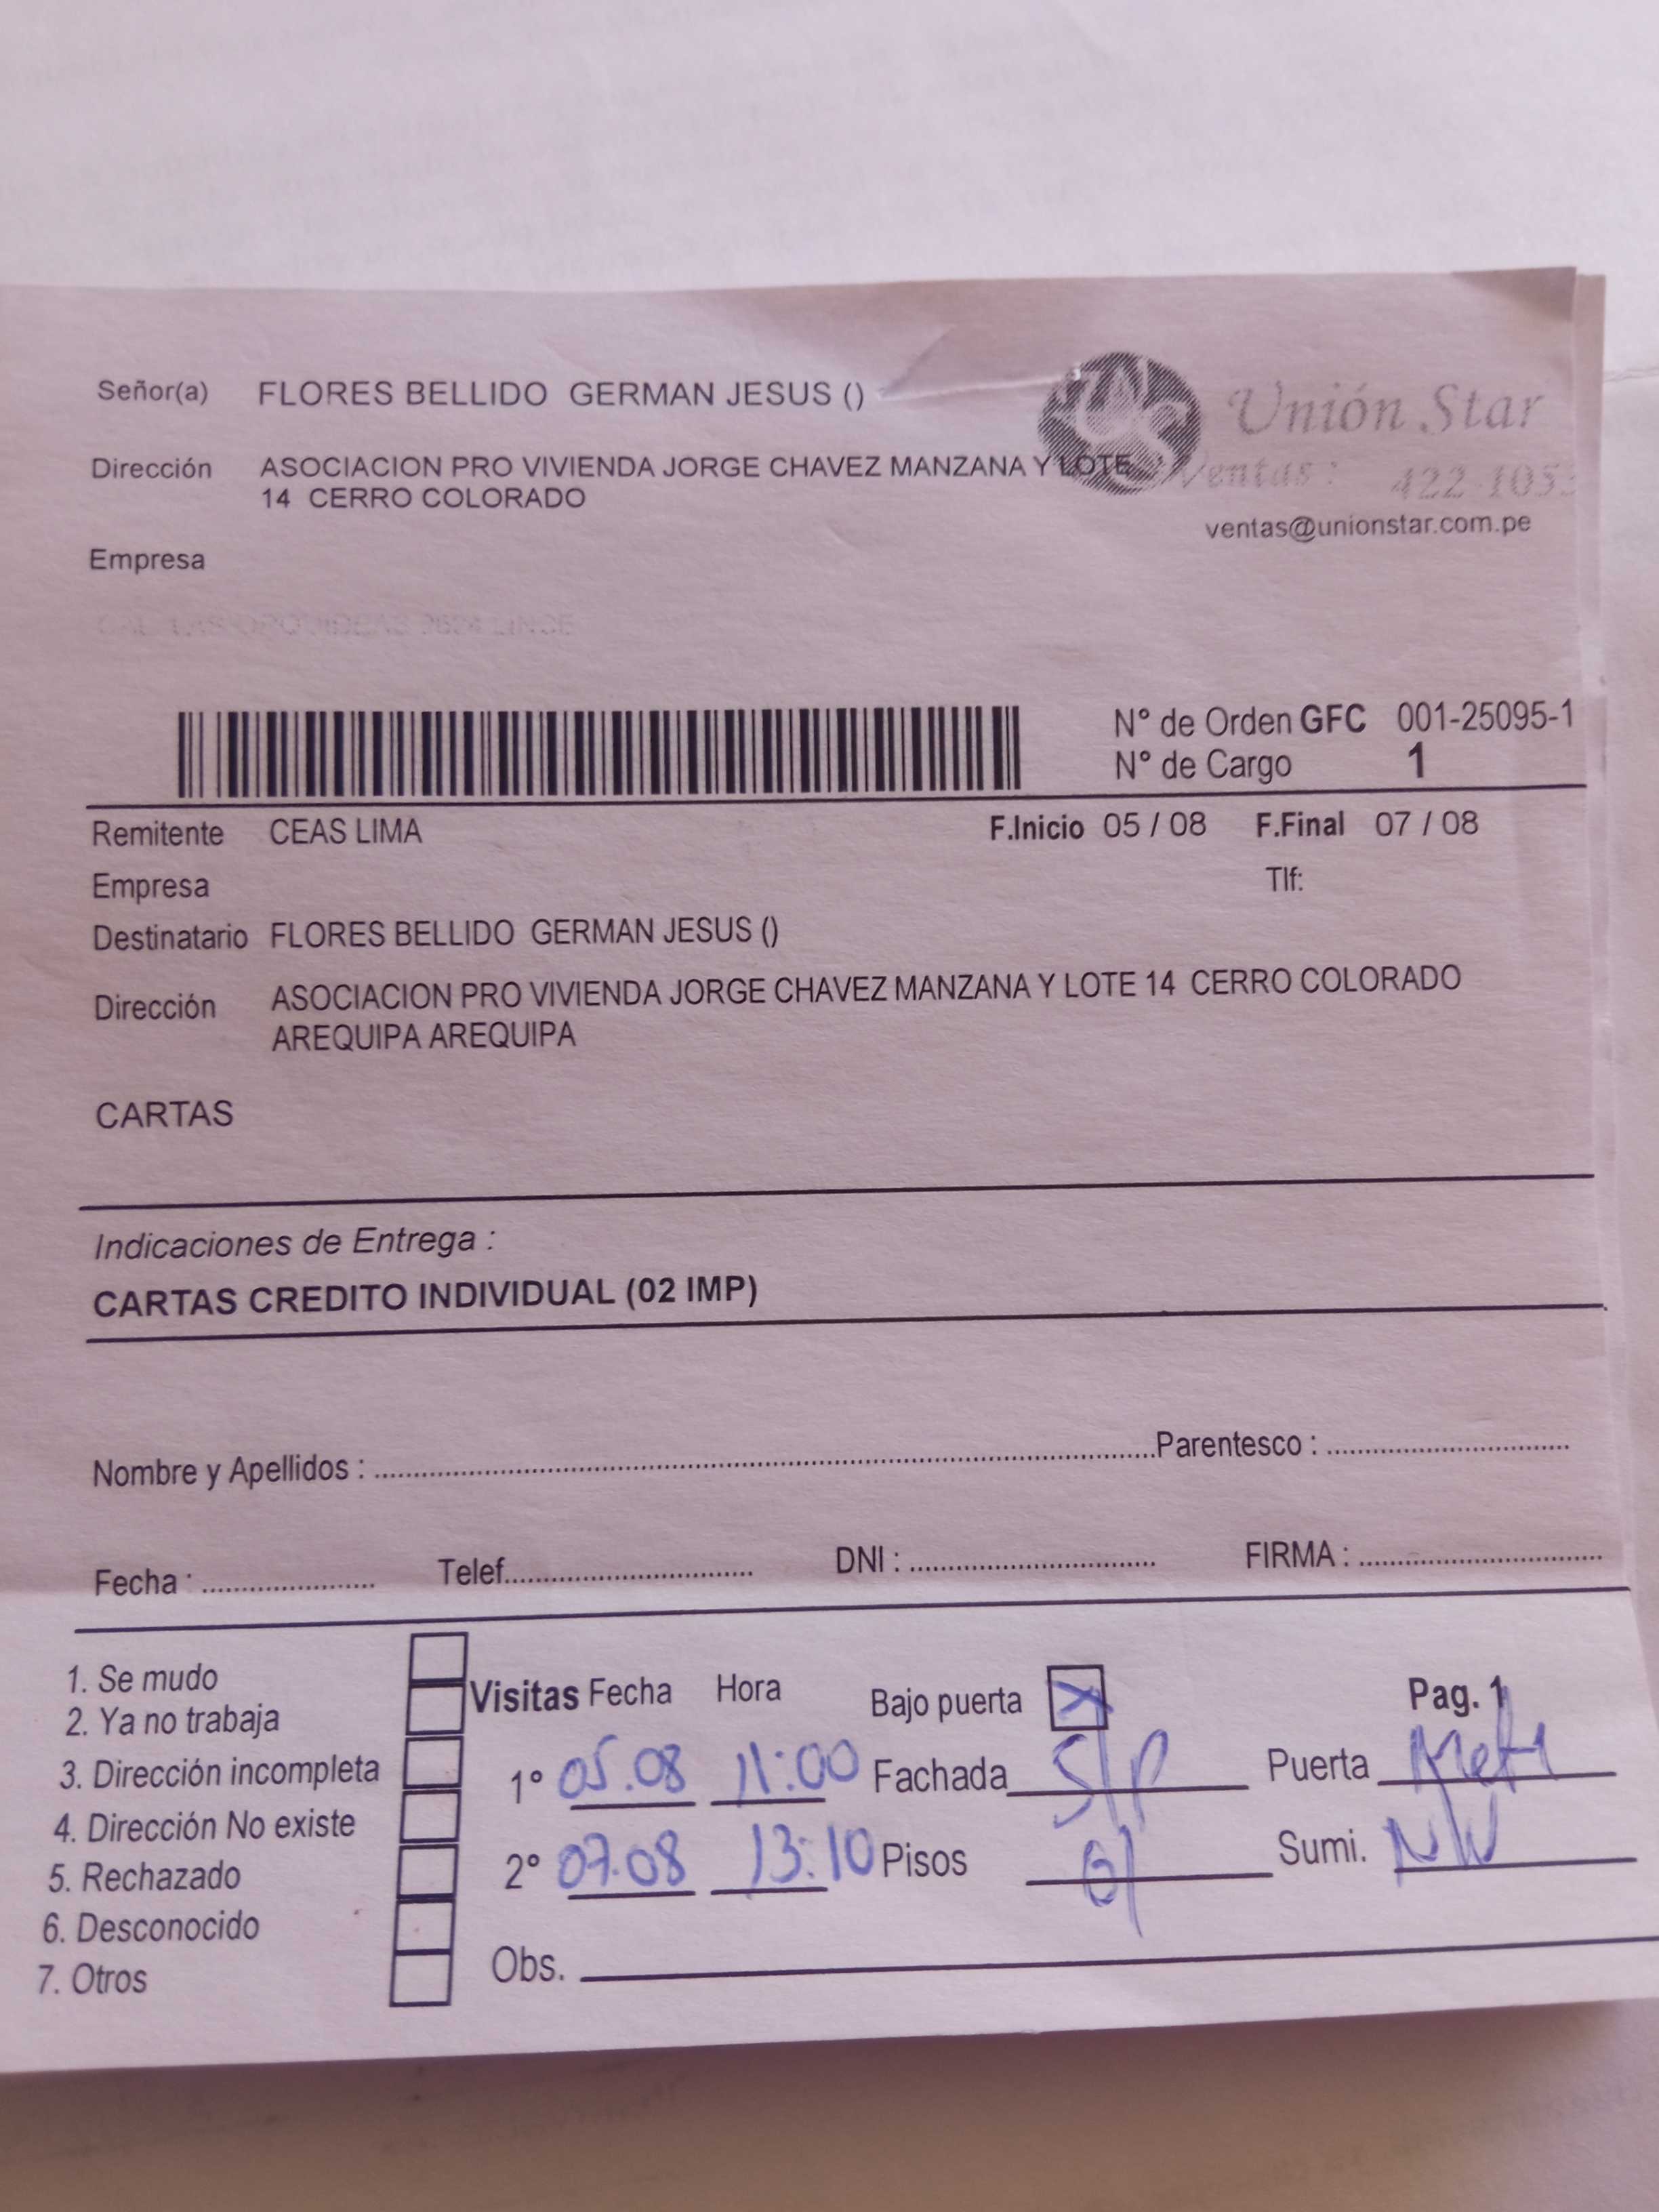 Señor(a) FLORES BELLIDO GERMAN JESUS ()
Unión Star
Dirección ASOCIACION PRO VIVIENDA JORGE CHAVEZ MANZANA Y LOTE
14 CERRO COLORADO
Ventas: 422-105
ventas@unionstar.com.pe
Empresa
N° de Orden GFC 001-25095-1
N° de Cargo 1
Remitente CEAS LIMA F.Inicio 05 / 08 F.Final 07 / 08
Empresa Tlf:
Destinatario FLORES BELLIDO GERMAN JESUS ()
Dirección ASOCIACION PRO VIVIENDA JORGE CHAVEZ MANZANA Y LOTE 14 CERRO COLORADO
AREQUIPA AREQUIPA
CARTAS
Indicaciones de Entrega :
CARTAS CREDITO INDIVIDUAL (02 IMP)
Nombre y Apellidos : Parentesco :
Fecha : Telef. DNI : FIRMA :
1. Se mudo
2. Ya no trabaja
3. Dirección incompleta
4. Dirección No existe
5. Rechazado
6. Desconocido
7. Otros
Visitas Fecha Hora Bajo puerta X Pag. 1
1° 05.08 11:00 Fachada S/P Puerta Met
2° 07.08 13:10 Pisos Sumi. N/V
Obs.